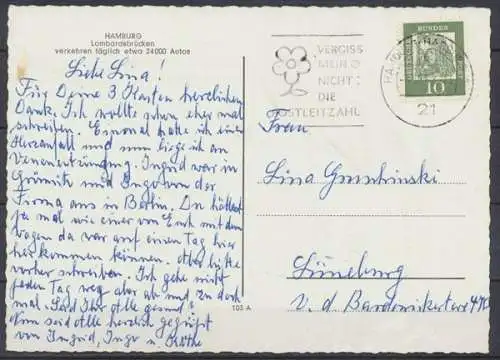 HAMBURG
Lombardsbrücken
verkehren täglich etwa 24000 Autos
Liebe Lina!
Für Deine 3 Karten herzlichen
Dank. Ich wollte schon eher mal
schreiben. Einmal hatte ich einen
Herzanfall und nun liege ich an
Venenentzünzung. Ingrid war in
und Ingo von der
Firma aus in Berlin. Du hättest
ja mal wie einer von Euch mit dem
Wagen da war auf einen Tag hier
her kommen können. Aber bitte
vorher schreiben. Ich gehe nicht
jeden Tag weg aber ab und zu doch
mal. Seid Ihr Alle gesund?
Nun seid Alle herzlich gegrüßt
von Ingrid, Ingo u. Käthe
103 A
VERGISS
MEIN
NICHT
DIE
POSTLEITZAHL
21
10
Frau
Lina
Lüneburg
v. d. Bardowikertor